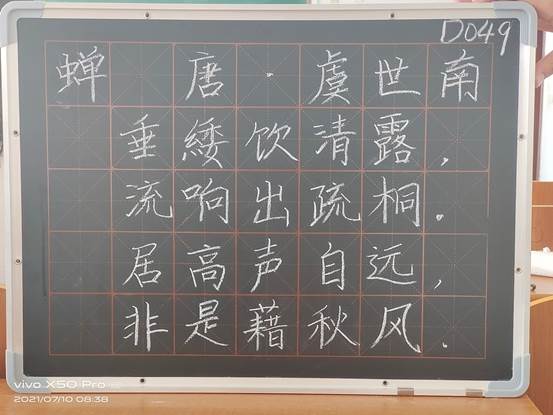 D049
蝉 唐·虞世南
垂緌饮清露,
流响出疏桐。
居高声自远,
非是藉秋风.
vivo X50 Pro
2021/07/10 08:38